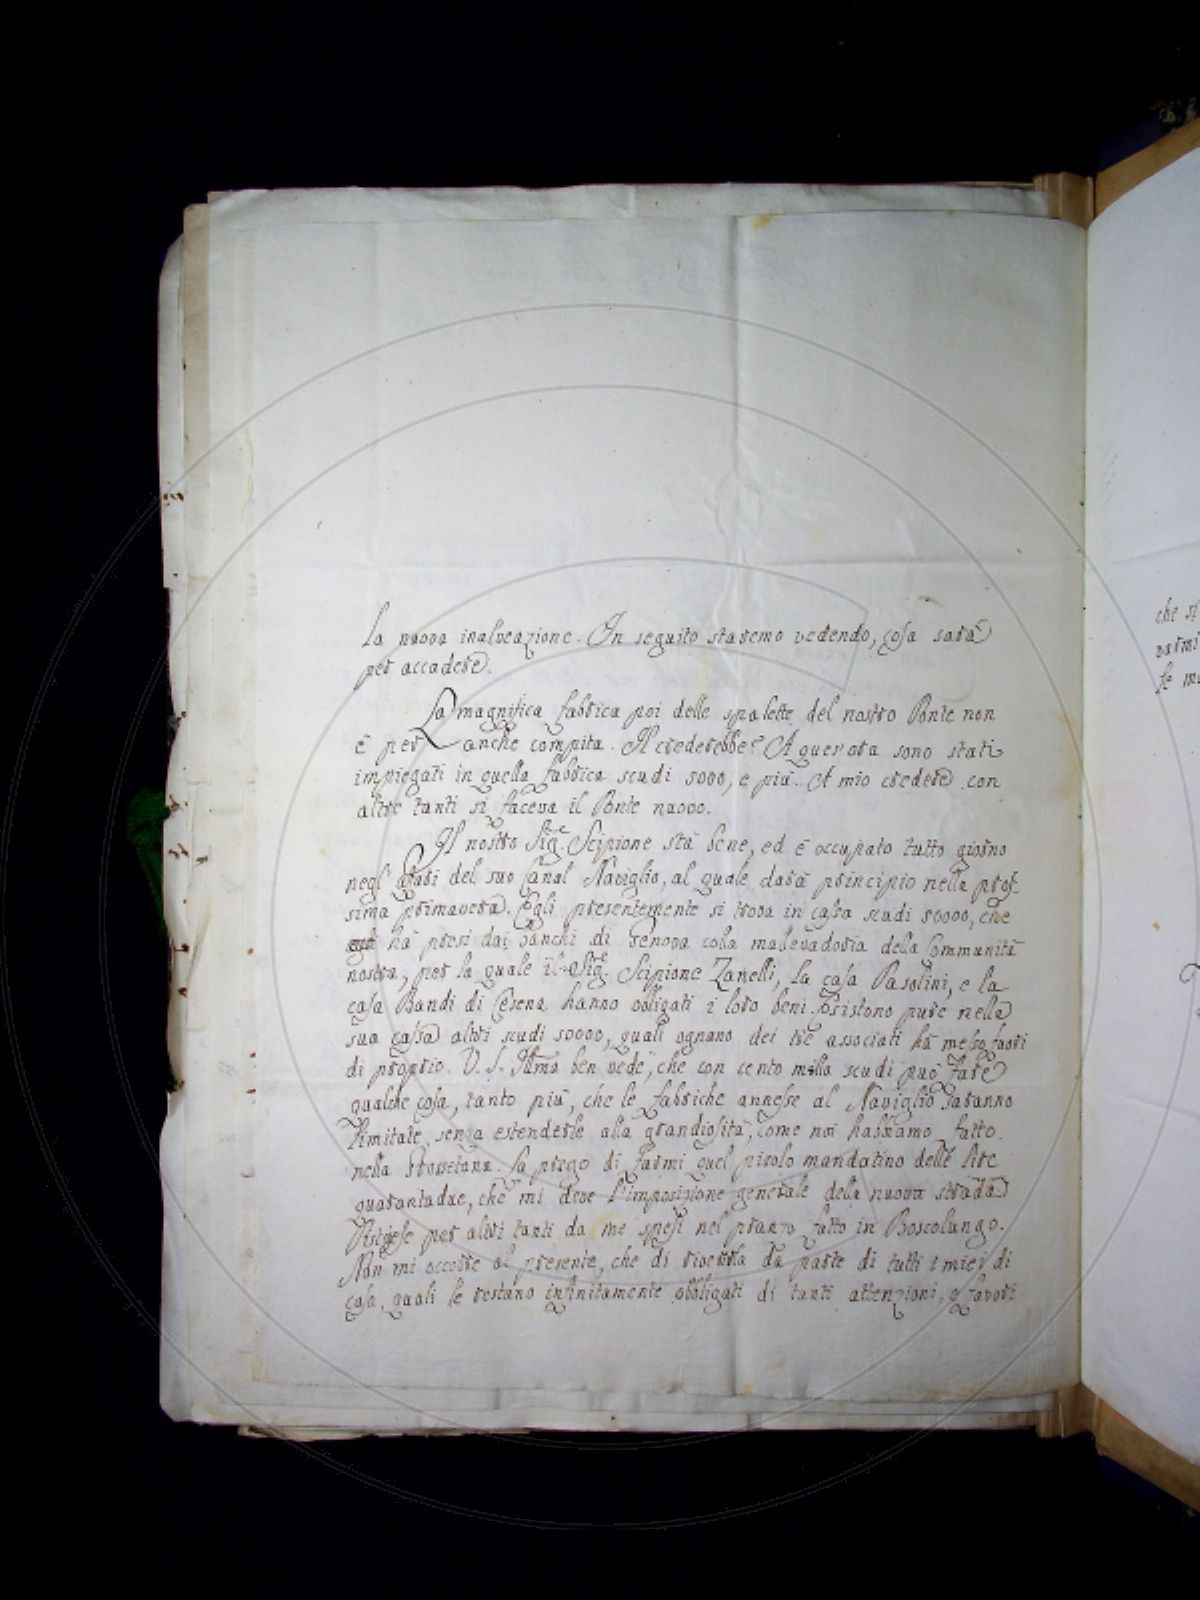 la nuova inalveazione. In seguito staremo vedendo, cosa sarà
per accadere.
La magnifica fabbrica poi delle spalette del nostro Ponte non
è per anche compita. Il crederebbe? A quest'ora sono stati
impiegati in quella fabbrica scudi 5000, e più. A mio credere con
altre tanti si faceva il Ponte nuovo.
Il nostro Sig.e Scipione stà bene, ed è occupato tutto giorno
negl' affari del suo Canal Naviglio, al quale darà principio nella pros-
sima primavera. Egli presentemente si trova in cassa scudi 50000, che
hà presi dai banchi di Genova colla mallevadoria della Communità
nostra, per la quale il Sig.e Scipione Zanelli, la casa Pasolini, e la
casa Bandi di Cesena hanno obbligati i loro beni. Esistono pure nella
sua cassa altri scudi 50000, quali ognuno dei tre associati hà messo fuori
di proprio. V. S. Illma ben vede, che con cento milla scudi può fare
qualche cosa, tanto più, che le fabbriche annesse al Naviglio saranno
limitate, senza estenderle alla grandiosità, come noi habbiamo fatto
nella Rossetana. La prego di farmi quel picolo mandatino delle lire
quarantadue, che mi deve l'imposizione generale della nuova strada
per altri tanti da me spesi nel pranzo fatto in Boscolungo.
Non mi occorre al presente, che di riverirla da parte di tutti i miei di
casa, quali le restano infinitamente obbligati di tanti attenzioni, e favori
che si
varmi
se m